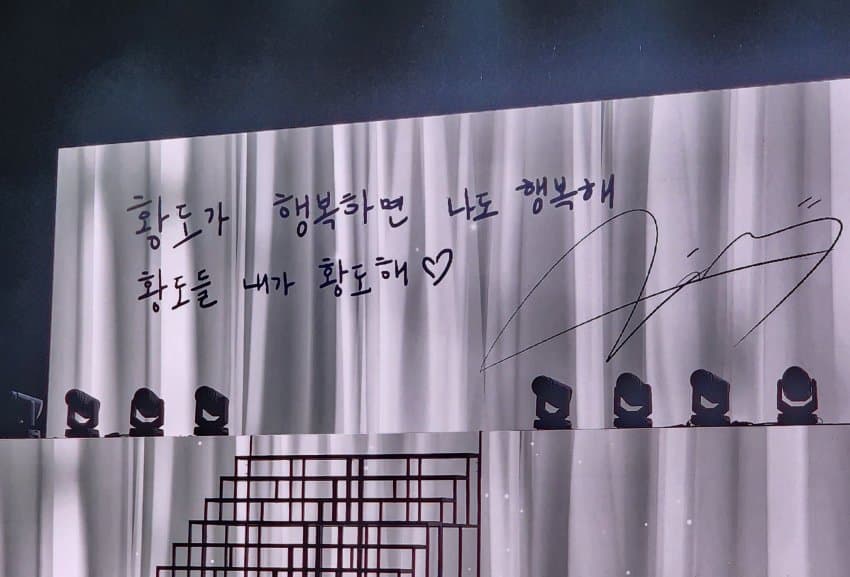 황도가 행복하면 나도 행복해
황도들 내가 황도해♡